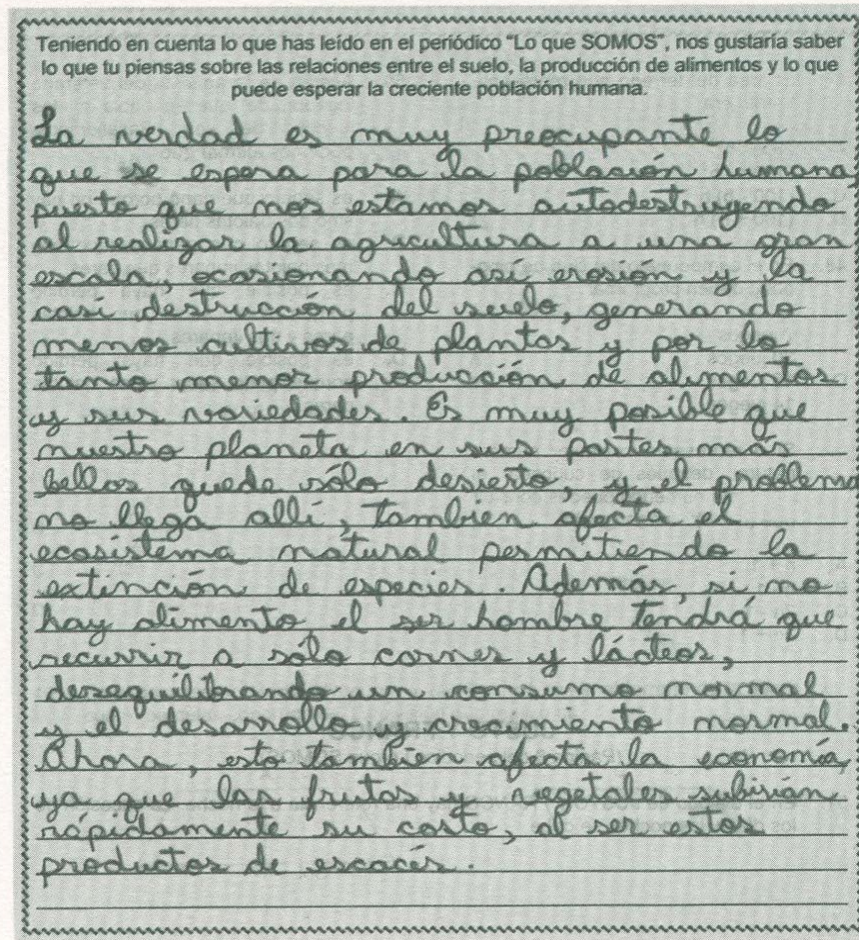 Teniendo en cuenta lo que has leído en el periódico "Lo que SOMOS", nos gustaría saber
lo que tu piensas sobre las relaciones entre el suelo, la producción de alimentos y lo que
puede esperar la creciente población humana.
La verdad es muy preocupante lo
que se espera para la población humana,
puesto que nos estamos autodestruyendo
al realizar la agricultura a una gran
escala, ocasionando así erosión y la
casi destrucción del suelo, generando
menos cultivos de plantas y por lo
tanto menor producción de alimentos
y sus variedades. Es muy posible que
nuestro planeta en sus partes más
bellas quede sólo desierto, y el problema
no llega allí, tambien afecta el
ecosistema natural permitiendo la
extinción de especies. Además, si no
hay alimento el ser hombre tendrá que
recurrir a sólo carnes y lácteos,
desequilibrando un consumo normal
y el desarrollo y crecimiento normal.
Ahora, esto tambien afecta la economía,
ya que las frutas y vegetales subirían
rápidamente su costo, al ser estos
productos de escacés.